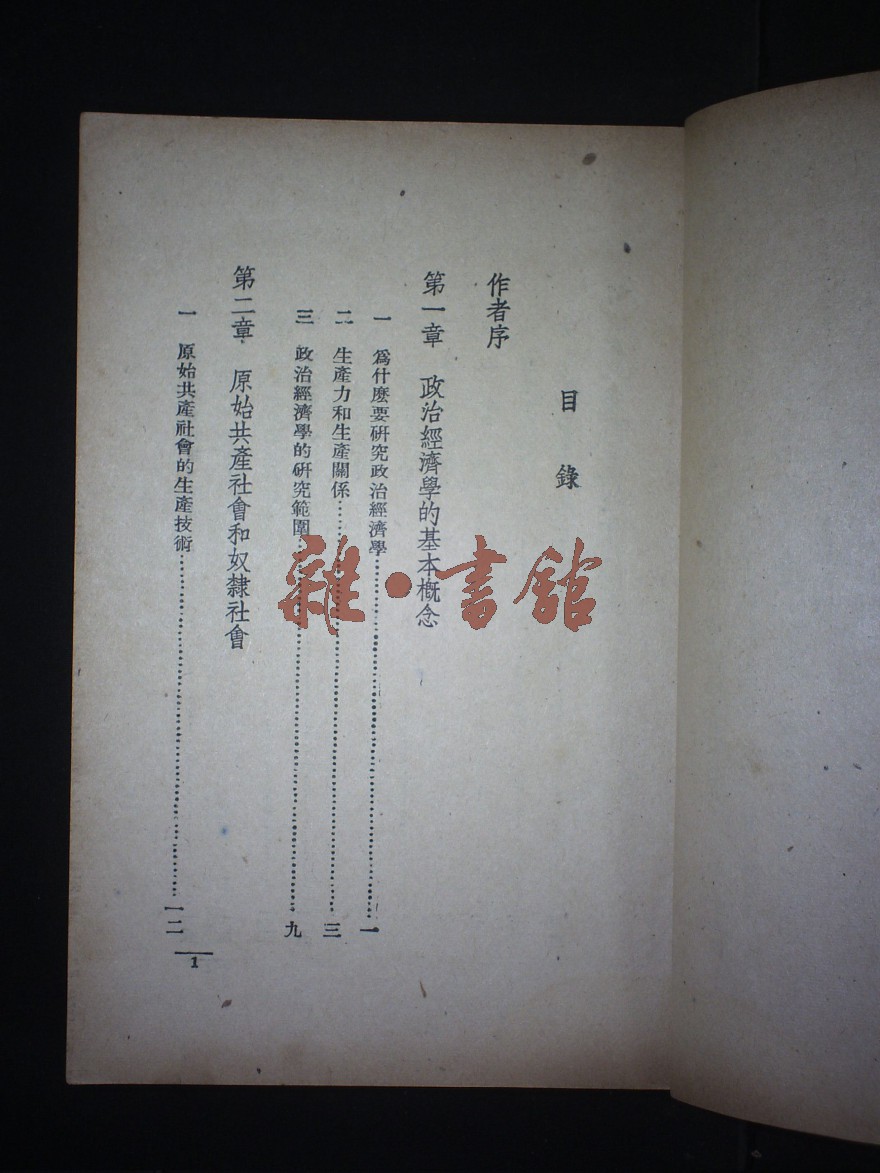 目錄
作者序
第一章　政治經濟學的基本概念
一　爲什麽要硏究政治經濟學……一
二　生產力和生產關係……三
三　政治經濟學的硏究範圍……九
第二章　原始共產社會和奴隸社會
一　原始共產社會的生產技術……一二
1
雜·書館